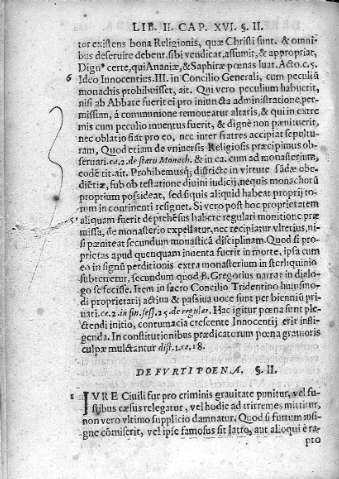 LIB. II. CAP. XVI. §. II.
tor existens bona Religionis, quæ Christi sunt, & omni-
bus deseruire debent, sibi vendicat, assumit, & appropriat,
Dign° certe, qui Ananiæ, & Saphiræ pœnas luat. Acto. c. 5.
6 Ideo Innocentius III. in Concilio Generali, cum peculiū
monachis prohibuisset, ait. Qui vero peculium habuerit,
nisi ab Abbate fuerit ei pro iniuncta administratione, per-
missum, à communione remoueatur altaris, & qui in extre
mis cum peculio inuentus fuerit, & digne non pœnituerit,
nec oblatio fiat pro eo, nec inter fratres accipiat sepultu-
ram, Quod etiam de vniuersis Religiosis præcipimus ob-
seruari. ca. 2. de statu Monach. & in ca. cum ad monasterium,
eodē tit. ait. Prohibemusq; districte in virtute sāctæ obe-
diētiæ, sub obtestatione diuini iudicij, ne quis monachus
proprium possideat, sed si quis aliquid habeat proprij to-
tum in continenti resignet. Si vero post hoc proprietatem
aliquam fuerit deprehēsus habere regulari monitione præ
missa, de monasterio expellatur, nec recipiatur vlterius, ni-
si pœniteat secundum monasticā disciplinam. Quod si pro-
prietas apud quenquam inuenta fuerit in morte, ipsa cum
eo in signū perditionis extra monasterium in sterquilinio
subterretur, secundum quod B. Gregorius narrat in dialo-
go se fecisse. Item in sacro Concilio Tridentino huiusmo-
di proprietarij actiua & passiua voce sunt per bienniū pri-
uati. ca. 2. in fin. sess. 25. de regular. Hac igitur pœna sunt ple-
ctendi initio, contumacia crescente Innocentij erit insti-
genda. In constitutionibus prædicatorum pœna grauioris
culpæ mulctantur dist. 1. ca. 18.
DE FVRTI POENA. §. II.
1 IVRE Ciuili fur pro criminis grauitate punitur, vel fu-
stibus cæsus relegatur, vel hodie ad triremes mittitur,
non vero vltimo supplicio damnatur. Quod si furtum insi-
gne cōmiserit, vel ipse famosus sit latro, aut alioqui è ra-
pto